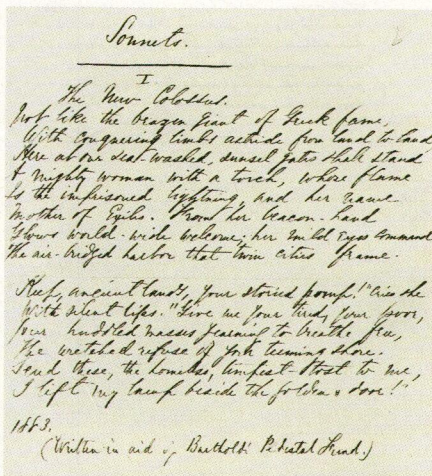 Sonnets.
I
The New Colossus.
Not like the brazen giant of Greek fame,
With conquering limbs astride from land to land
Here at our sea-washed, sunset gates shall stand
A mighty woman with a torch, whose flame
Is the imprisoned lightning, and her name
Mother of Exiles. From her beacon-hand
Glows world-wide welcome; her mild eyes command
The air-bridged harbor that twin cities frame.
"Keep, ancient lands, your storied pomp!" cries she
With silent lips. "Give me your tired, your poor,
Your huddled masses yearning to breathe free,
The wretched refuse of your teeming shore.
Send these, the homeless, tempest-tost to me,
I lift my lamp beside the golden door!"
1883.
(Written in aid of Bartholdi Pedestal Fund.)